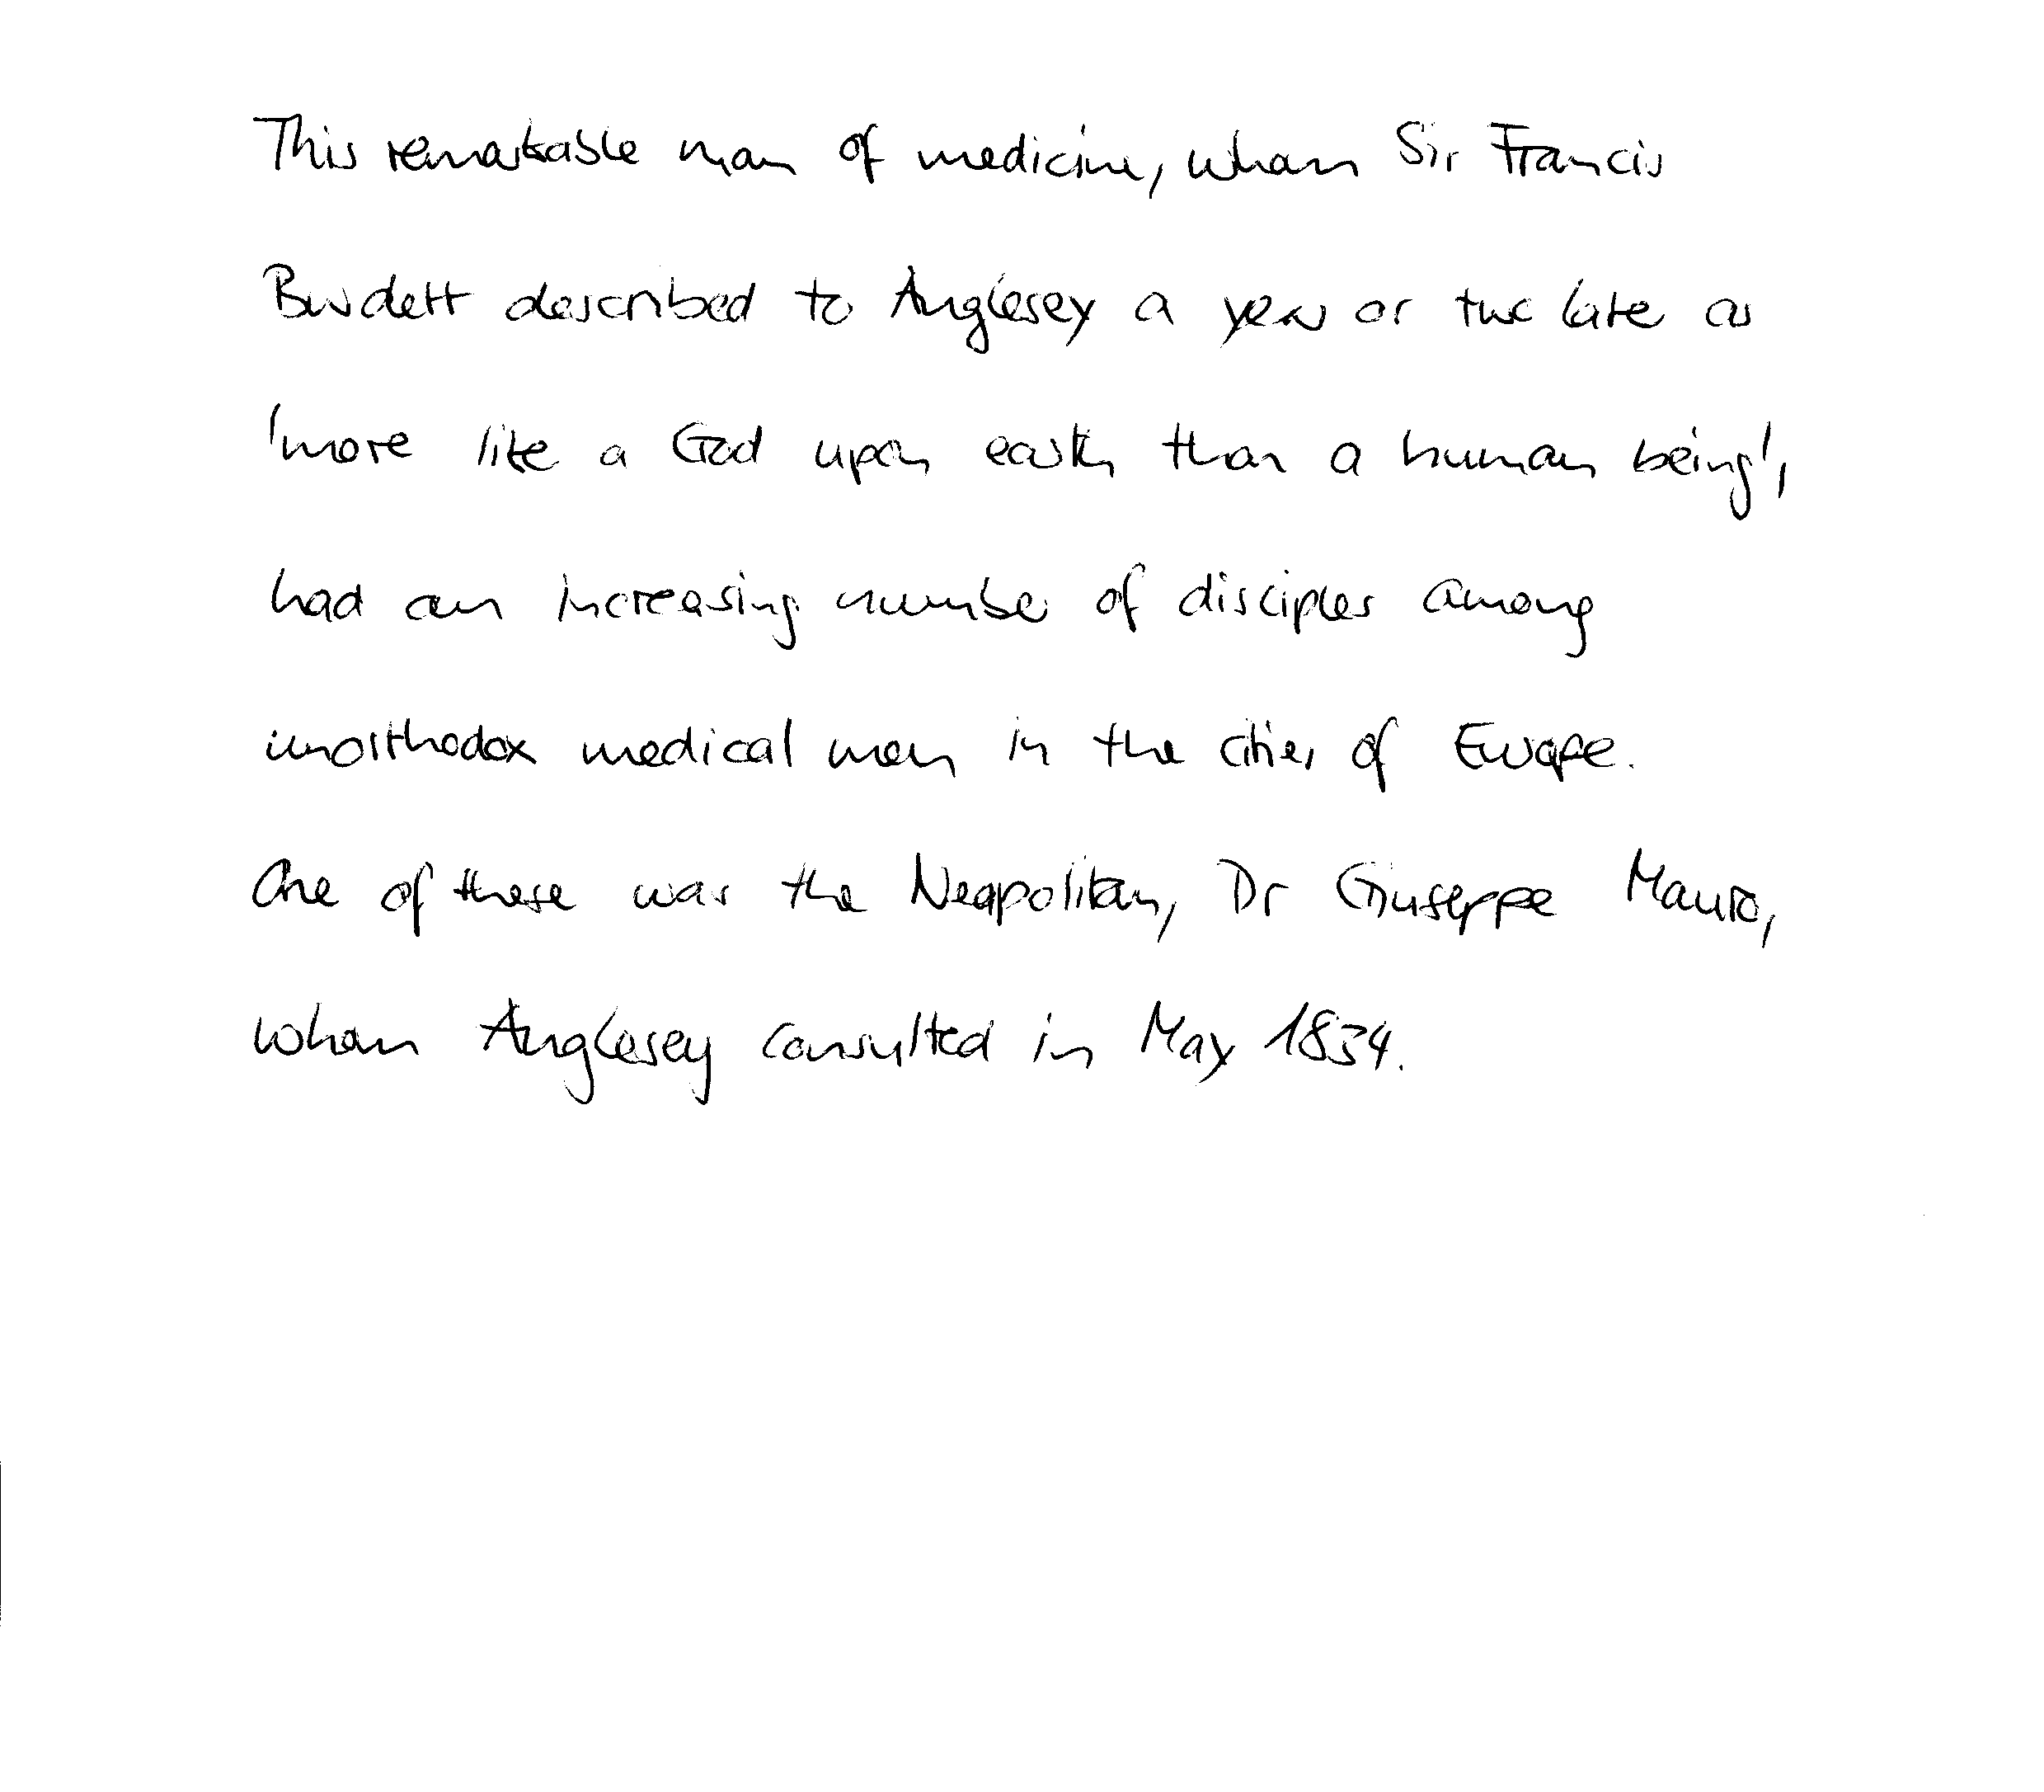 This remarkable man of medicine, whom Sir Francis
Burdett described to Anglesey a year or two later as
'more like a God upon earth than a human being',
had an increasing number of disciples among
unorthodox medical men in the cities of Europe.
One of these was the Neapolitan, Dr Giuseppe Mauro,
whom Anglesey consulted in May 1834.